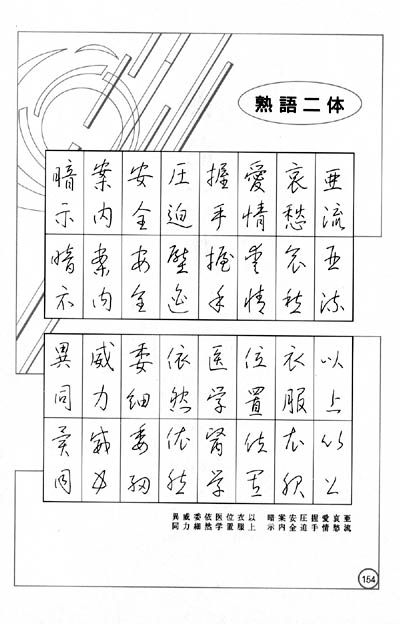 熟語二体
亜流亜流
哀愁哀愁
愛情愛情
握手握手
圧迫壓迫
安全安全
案内案内
暗示暗示
以上以上
衣服衣服
位置位置
医学醫学
依然依然
委細委細
威力威力
異同異同
亜流
哀愁
愛情
握手
圧迫
安全
案内
暗示
以上
衣服
位置
医学
依然
委細
威力
異同
154